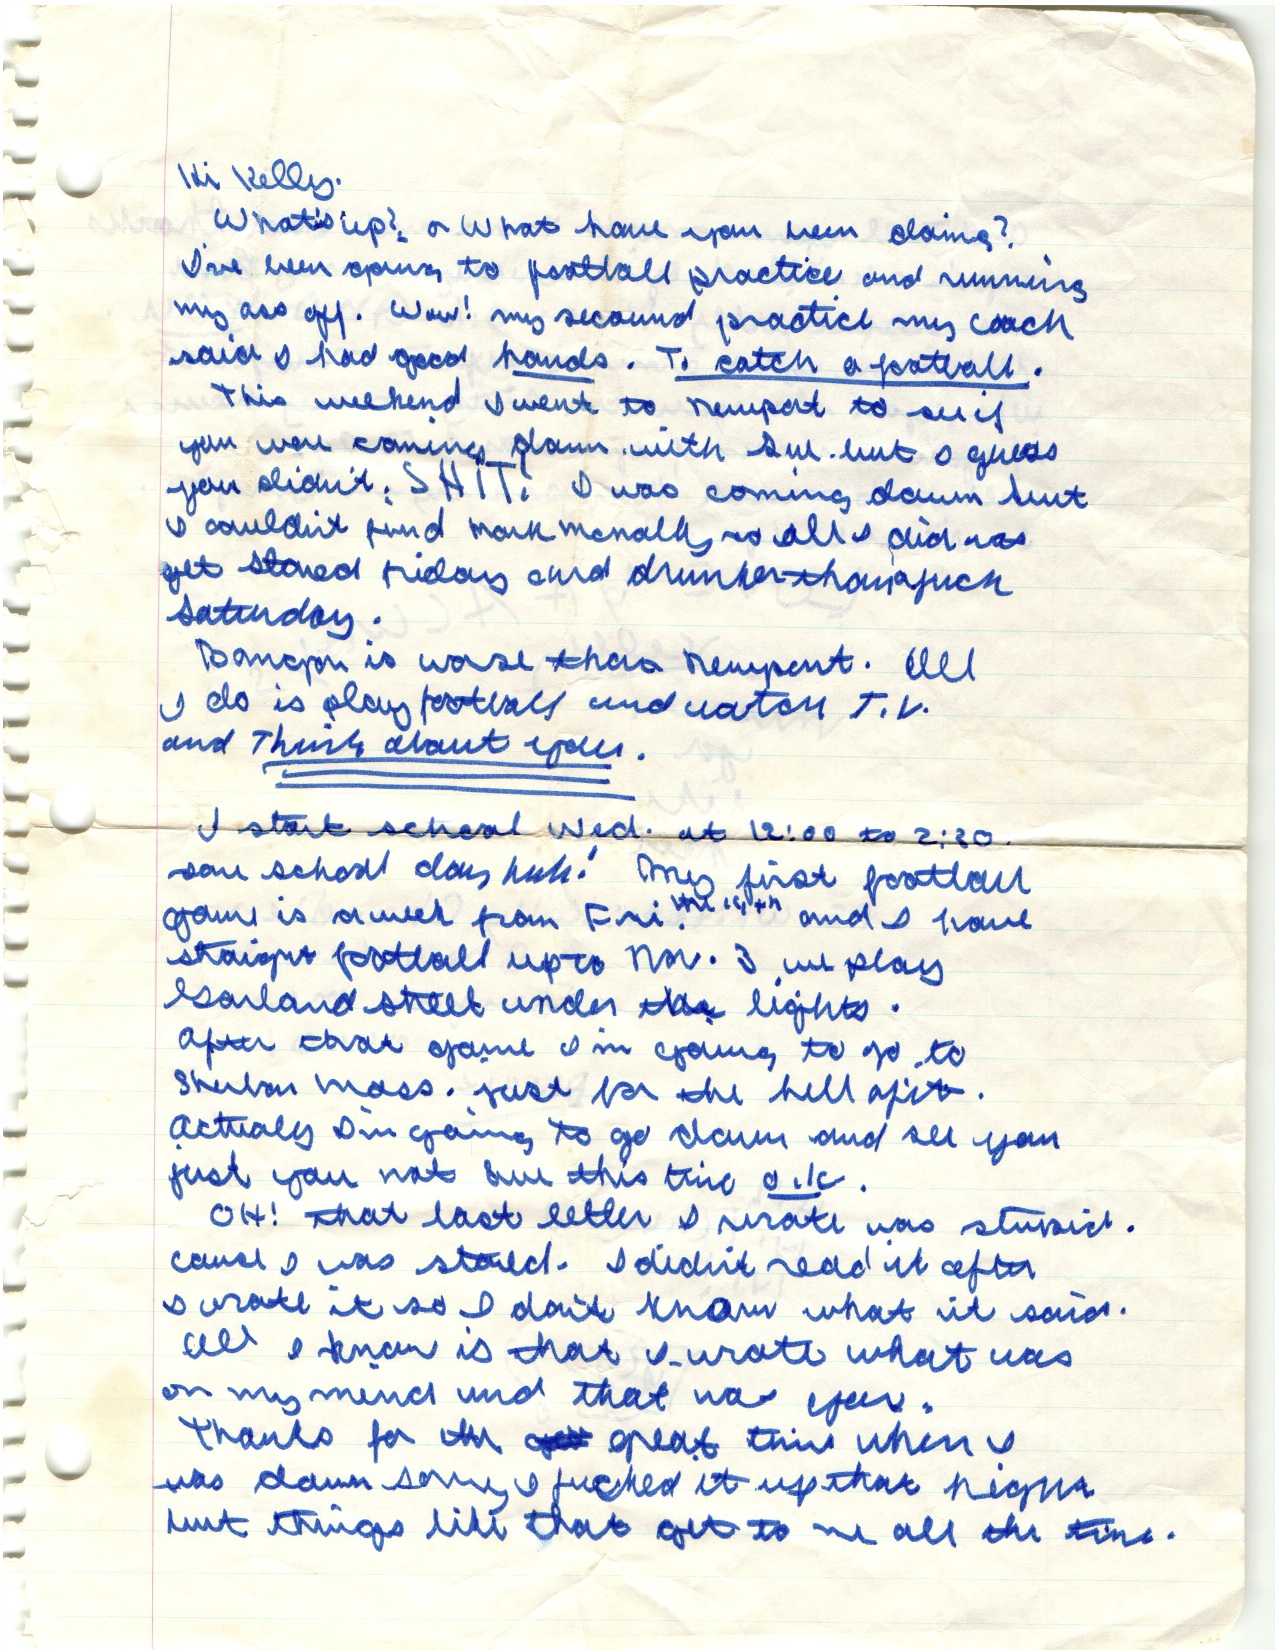 Hi Kelly.
What's up?, or What have you been doing?
I've been going to football practice and running
my ass off. Wow! my second practice my coach
said I had good hands. To catch a football.
This weekend I went to Newport to see if
you were coming down with Sue but I guess
you didn't. SHIT! I was coming down but
I couldn't find Mark McNally so all I did was
get stoned Friday and drunker than a fuck
Saturday.
Bangor is worse than Newport. All
I do is play football and watch T.V.
and Think about you.
I start school Wed. at 12:00 to 2:30.
some school day huh! My first football
game is a week from Fri. the 14th and I have
straight football up to Nov. 3 we play
Garland street under the lights.
After that game I'm going to go to
Mass. just for the hell of it.
Actualy I'm going to go down and see you
just you not Sue this time o.k.
OH! that last letter I wrote was stupid.
cause I was stoned. I didn't read it after
I wrote it so I don't know what it said.
All I know is that I wrote what was
on my mind and that was you.
Thanks for the great time when I
was down sorry I fucked it up that night
but things like that get to me all the time.